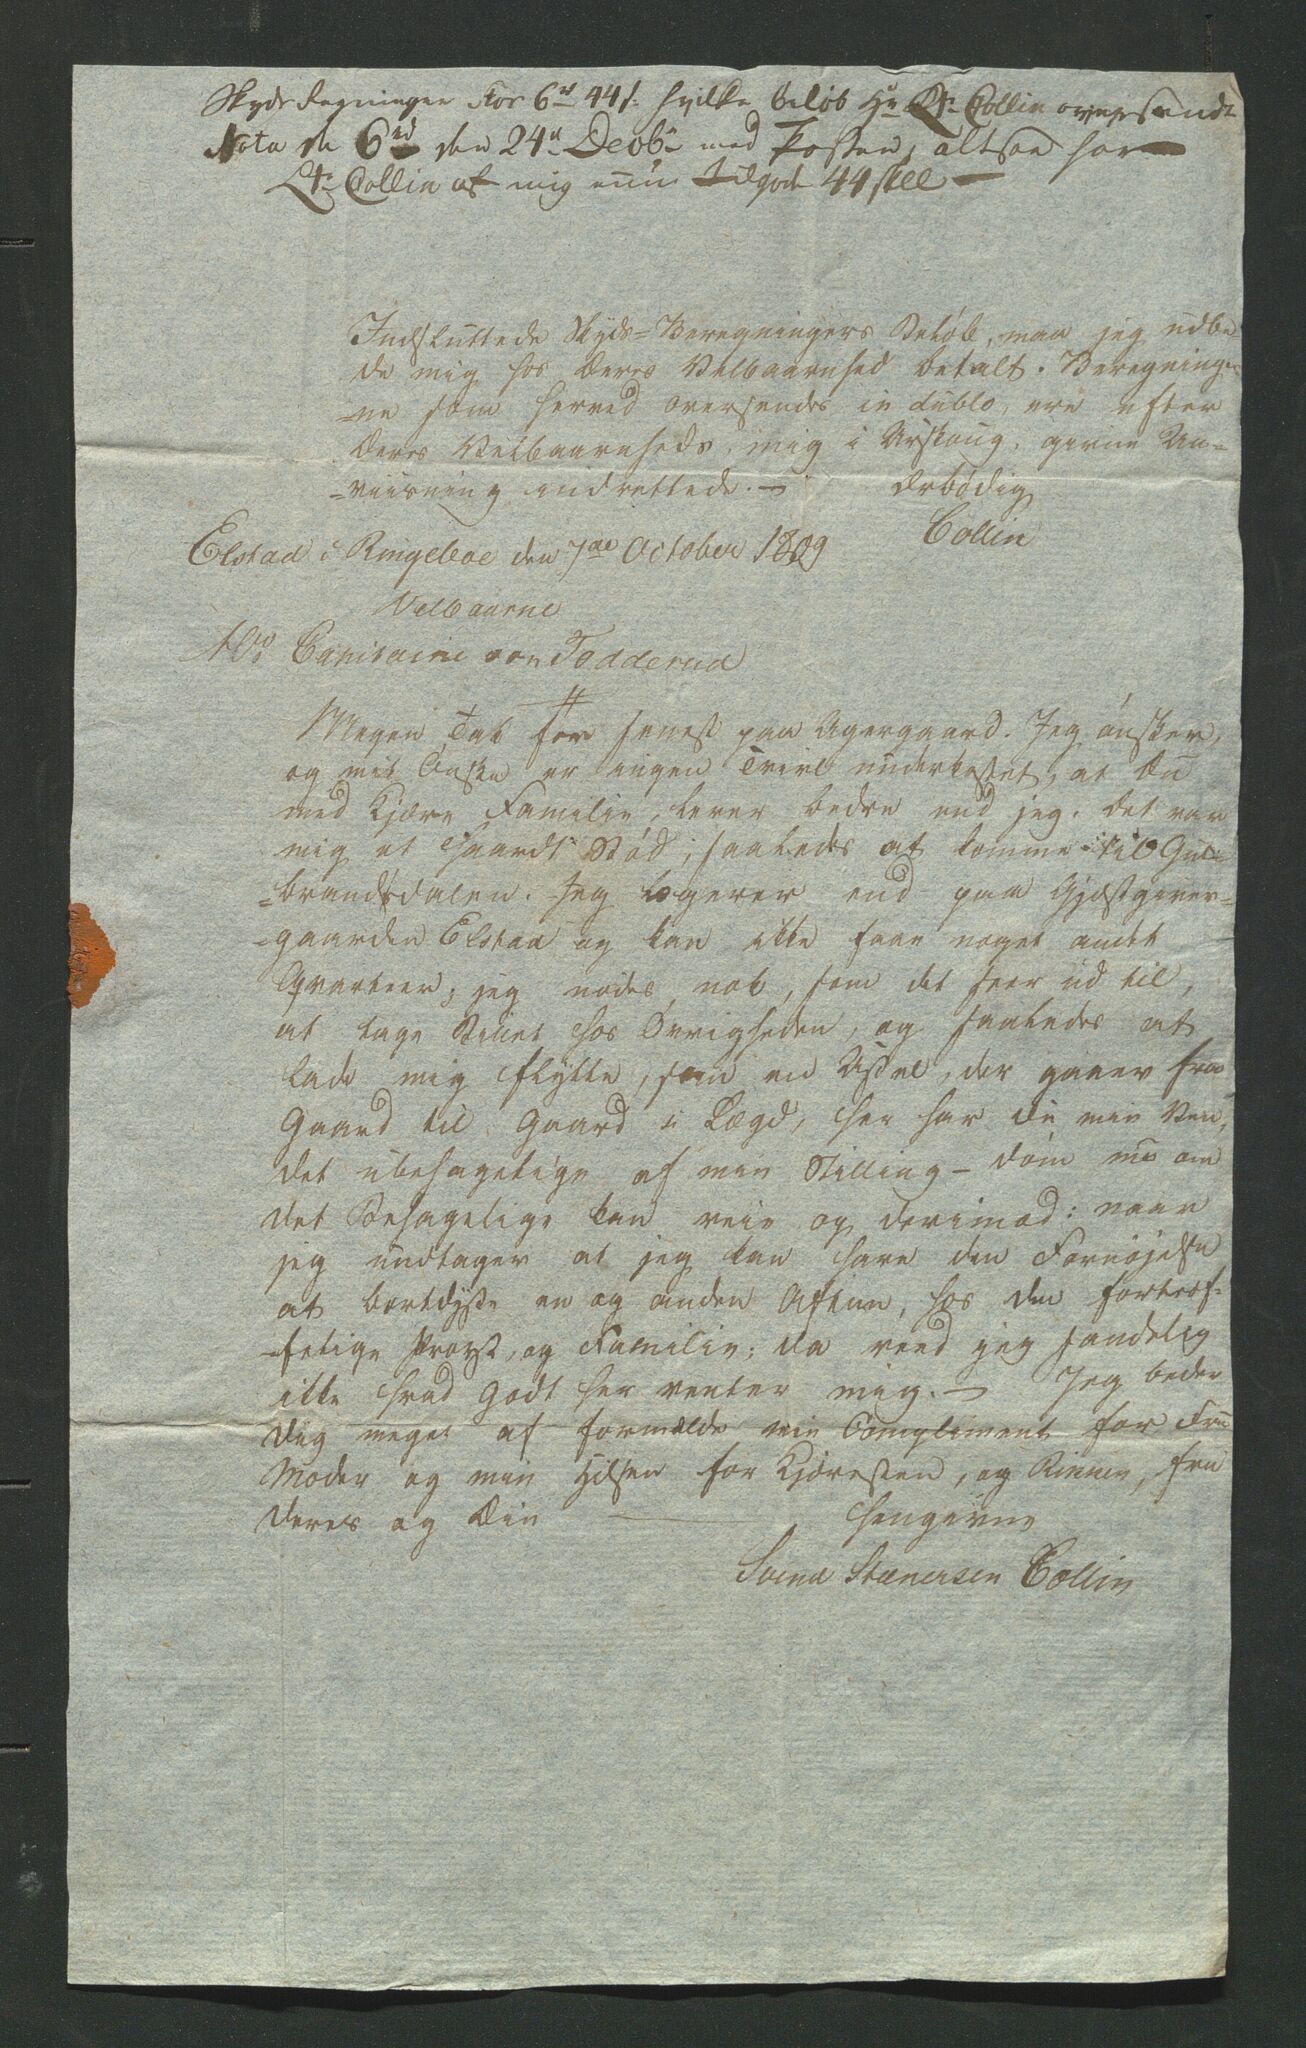 Skyds Regningen stor 6rd 44s. hvilke beløb Hr Lt: Collin oversendt
Nota de 6rd den 24de Decbr med Posten, altsaa har
Lt: Collin af mig endnu Tilgode 44 skll —
Indsluttede Skyds-Beregningers Beløb, maa jeg udbe-
de mig hos Deres Velbaarnhed betalt. Beregninger-
-ne som herved oversendes in dublo, ere efter
Deres Velbaarnheds, mig i Urskoug, givne An-
-viisning indrettede. — ærbødig
Collin
Elstad i Ringeboe den 7de October 1809
Velbaarne
Hr Capitaine von Todderud
Megen Tak for seenest paa Agergaard. Jeg ønsker,
og mit Ønske er ingen Tvivl underkastet, at Du
med kjære Familie, lever bedre end jeg. Det var
mig et haardt Stød, saaledes at komme til Gul-
-brandsdalen. Jeg logerer end paa Gjæstgiver-
-gaarden Elstad og kan ikke faae noget andet
Qvarteer; jeg nødes nok, som det seer ud til,
at tage Billet hos Øvrigheden, og saaledes at
lade mig flytte, som en Ussel, der gaaer fra
Gaard til Gaard i Lægd, her har du min Ven,
det ubehagelige af min Stilling — døm nu om
det Behagelige kan veie op derimod: naar
jeg undtager at jeg kan have den Fornøjelse
at bortdysse en og anden Aften, hos den fortref-
-felige Provst, og Familie; da veed jeg sandelig
ikke hvad Godt her venter mig. — Jeg beder
dig meget at formelde min Compliment for Frue
Moder og min Hilsen for Kjæresten, og Rinnen, fra
Deres og Din — hengivne
Svend Stenersen Collin